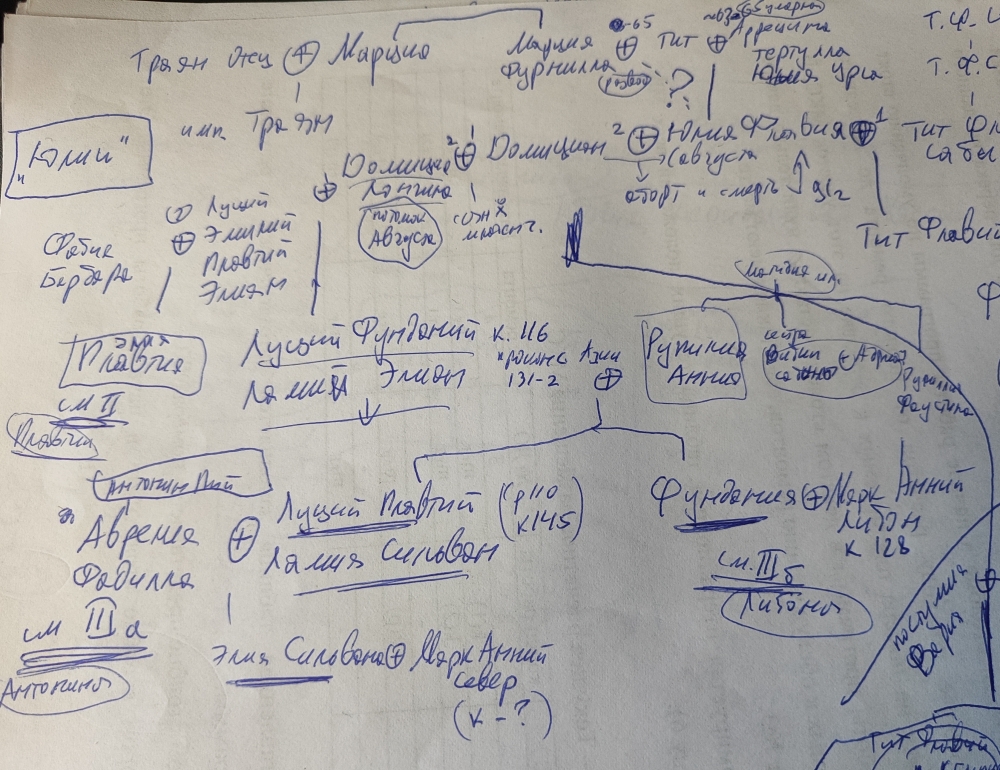 Траян отец Марция
Марция
Фурнилла
65
развод
Тит
Аррецина
Тертулла
Юлия Урса
Т. Ф.
Т. Ф. С
"Юлии"
имп. Траян
Домиция
Лонгина
потомок
Августа
2
1
Домициан
2
Юлия Флавия
Августа
аборт и смерть
?
1
Тит Фл
Сабин
сын
Тит Флавий
Фабия
Барбара
Луций
Элий
Плавтий
Элиан
Матидия мл.
Элия
Плавтия
см II
Плавтии
Луций Фунданий к. 116
Ламия Элиан
проконс Азии
131-2
Рупилия
Анния
сестра
Вибия
Сабина
Адриан
Рупилия
Фаустина
Антонин Пий
Аврелия
Фадилла
см III а
Антонины
Луций Плавтий
Ламия Сильван
(р 110
к 145)
Фундания
Марк Анний
Либон
к 128
см. III б
Либоны
Элия Сильвана
Марк Анний
Север
(к - ?)
Тит Флавий